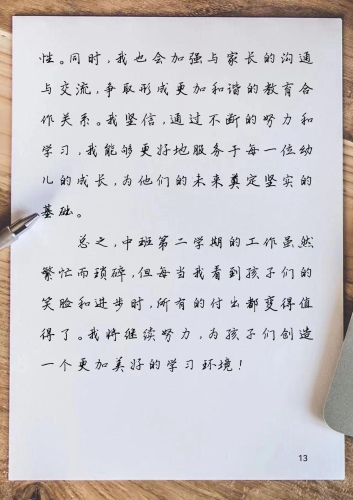 性。同时，我也会加强与家长的沟通
与交流，争取形成更加和谐的教育合
作关系。我坚信，通过不断的努力和
学习，我能够更好地服务于每一位幼
儿的成长，为他们的未来奠定坚实的
基础。
总之，中班第二学期的工作虽然
繁忙而琐碎，但每当我看到孩子们的
笑脸和进步时，所有的付出都变得值
得了。我将继续努力，为孩子们创造
一个更加美好的学习环境！
13